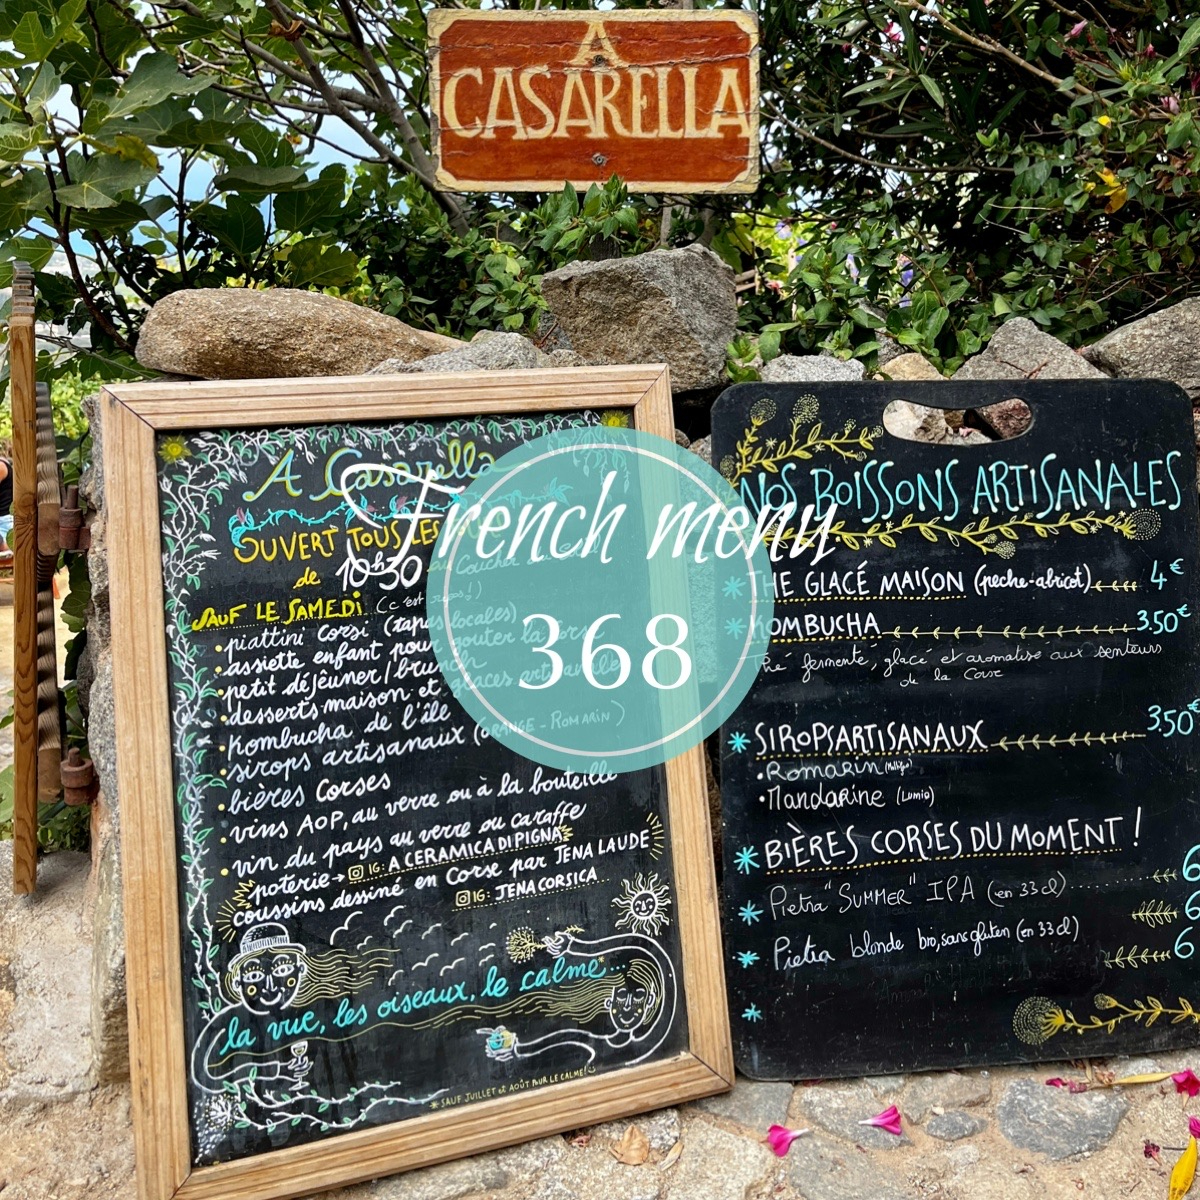 A
CASARELLA
A Casarella
OUVERT TOUS LES
de 10h30 au coucher
SAUF LE SAMEDI (c'est repos!)
• piattini corsi (tapas locales)
• assiette enfant pour gouter la
• petit déjeuner/brunch
• desserts maison et glaces artisanales
• kombucha de l'île
• sirops artisanaux (ORANGE - ROMARIN)
• bières Corses
• vins AOP, au verre ou à la bouteille
• vin du pays au verre ou caraffe
poterie → IG: A CERAMICA DI PIGNA
coussins dessiné en Corse par JENA LAUDE
IG: JENACORSICA
la vue, les oiseaux, le calme*...
* SAUF JUILLET et AOÛT POUR LE CALME!
French menu
368
NOS BOISSONS ARTISANALES
* THE GLACÉ MAISON (peche-abricot) 4€
* KOMBUCHA 3.50€
Thé fermenté, glacé et aromatisé aux senteurs
de la Corse
* SIROPS ARTISANAUX 3.50€
• Romarin
• Mandarine (Lumio)
* BIÈRES CORSES DU MOMENT !
* Pietra "SUMMER" IPA (en 33cl) 6
* Pietra blonde bio, sans gluten (en 33cl) 6
* 6